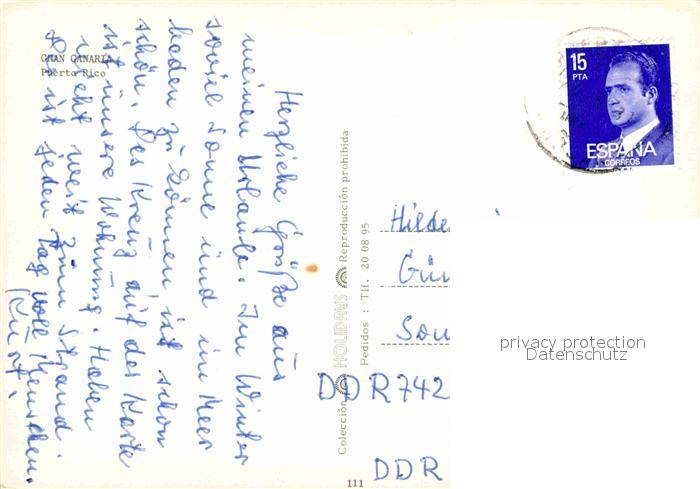 GRAN CANARIA
Puerto Rico
Herzliche Grüße aus
meinem Urlaub. Im Winter
soviel Sonne und im Meer
baden zu können, ist schon
schön. Das Kreuz auf der Karte
ist unsere Wohnung. Haben
nicht weit zum Strand.
Da ist jeden Tag voll Menschen.
Kurt.
Colección HOLIDAYS Reproducción prohibida
Pedidos : Tlf. 20 08 95
111
15
PTA
ESPAÑA
CORREOS
Hilde
Gün
Son
DDR 742
DDR
privacy protection
Datenschutz